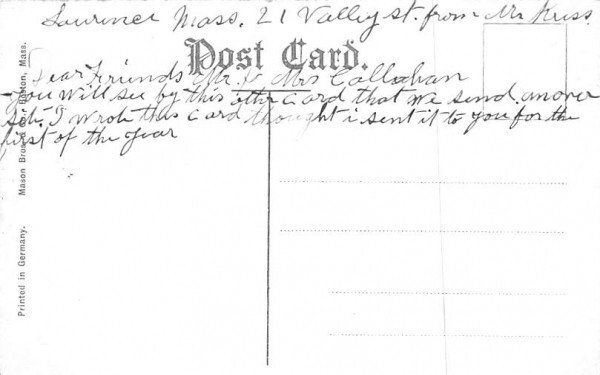 Lawrence Mass. 21 Valley st. from Mr Kriss
Post Card.
Dear Friends Mr & Mrs Callahan
You will see by this other card that we send
I wrote this card thought i sent it to you for the
first of the year
Printed in Germany. Mason Bros & Co. Boston, Mass.